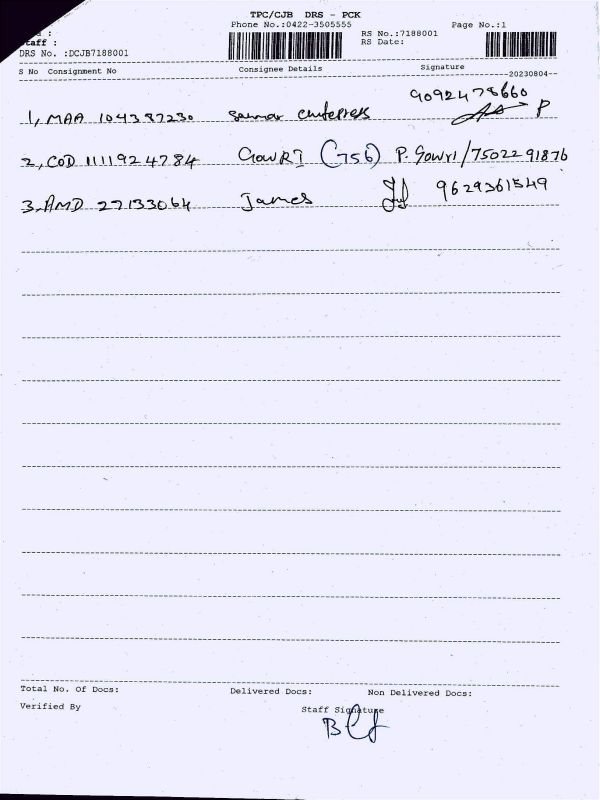 TPC/CJB DRS - PCK
Phone No.:0422-3505555 Page No.:1
RS No.:7188001
taff : RS Date:
DRS No. :DCJB7188001
S No Consignment No Consignee Details Signature
20230804
9092478660
1, MAA 104387230 P
2, COD 111192 4784 GOWRI (756) P. Gowri/75022 91876
3. AMD 27133064 James 9629361549
Total No. Of Docs: Delivered Docs: Non Delivered Docs:
Verified By Staff Signature